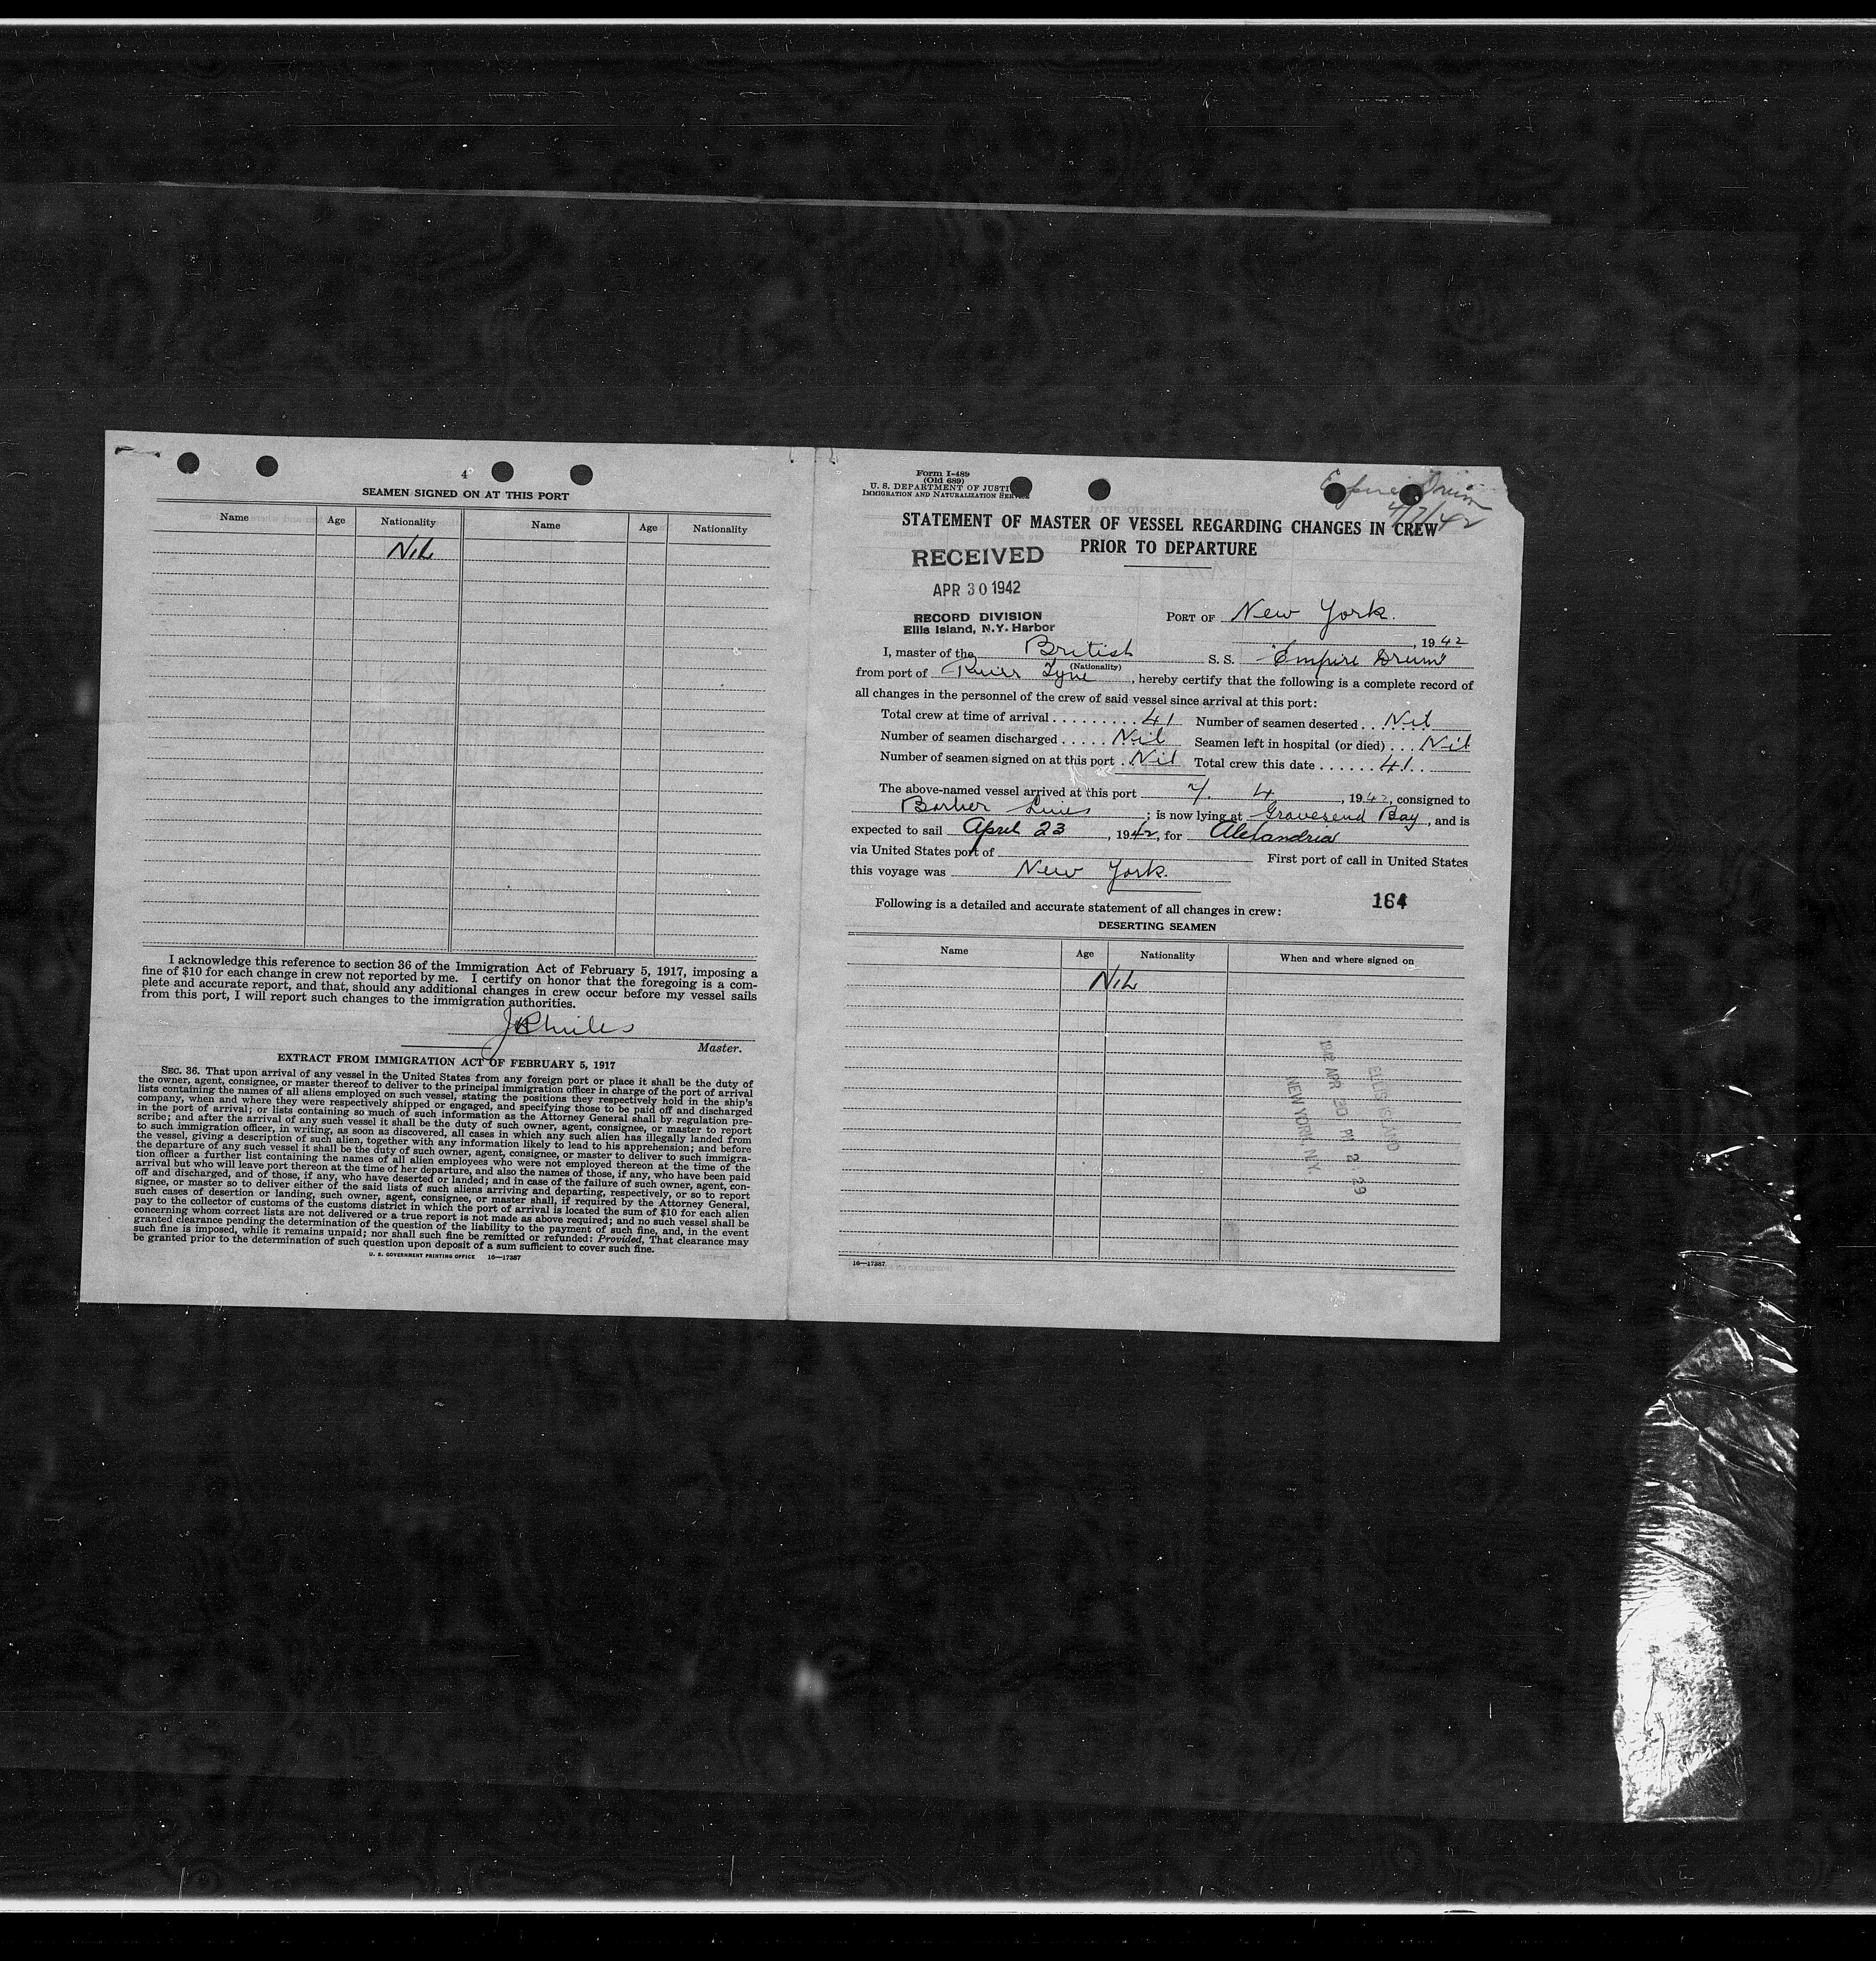 4
SEAMEN SIGNED ON AT THIS PORT
Name Age Nationality Name Age Nationality
NIL
I acknowledge this reference to section 36 of the Immigration Act of February 5, 1917, imposing a
fine of $10 for each change in crew not reported by me. I certify on honor that the foregoing is a com-
plete and accurate report, and that, should any additional changes in crew occur before my vessel sails
from this port, I will report such changes to the immigration authorities.
Master.
EXTRACT FROM IMMIGRATION ACT OF FEBRUARY 5, 1917
SEC. 36. That upon arrival of any vessel in the United States from any foreign port or place it shall be the duty of
the owner, agent, consignee, or master thereof to deliver to the principal immigration officer in charge of the port of arrival
lists containing the names of all aliens employed on such vessel, stating the positions they respectively hold in the ship's
company, when and where they were respectively shipped or engaged, and specifying those to be paid off and discharged
in the port of arrival; or lists containing so much of such information as the Attorney General shall by regulation pre-
scribe; and after the arrival of any such vessel it shall be the duty of such owner, agent, consignee, or master to report
to such immigration officer, in writing, as soon as discovered, all cases in which any such alien has illegally landed from
the vessel, giving a description of such alien, together with any information likely to lead to his apprehension; and before
the departure of any such vessel it shall be the duty of such owner, agent, consignee, or master to deliver to such immigra-
tion officer a further list containing the names of all alien employees who were not employed thereon at the time of the
arrival but who will leave port thereon at the time of her departure, and also the names of those, if any, who have been paid
off and discharged, and of those, if any, who have deserted or landed; and in case of the failure of such owner, agent, con-
signee, or master so to deliver either of the said lists of such aliens arriving and departing, respectively, or so to report
such cases of desertion or landing, such owner, agent, consignee, or master shall, if required by the Attorney General,
pay to the collector of customs of the customs district in which the port of arrival is located the sum of $10 for each alien
concerning whom correct lists are not delivered or a true report is not made as above required; and no such vessel shall be
granted clearance pending the determination of the question of the liability to the payment of such fine, and, in the event
such fine is imposed, while it remains unpaid; nor shall such fine be remitted or refunded: Provided, That clearance may
be granted prior to the determination of such question upon deposit of a sum sufficient to cover such fine.
U. S. GOVERNMENT PRINTING OFFICE 16—17387
Form I-489
(Old 689)
U. S. DEPARTMENT OF JUSTI
IMMIGRATION AND NATURALIZATION SERVICE
Empire Drum
4/7/42
STATEMENT OF MASTER OF VESSEL REGARDING CHANGES IN CREW
PRIOR TO DEPARTURE
RECEIVED
APR 30 1942
RECORD DIVISION
Ellis Island, N.Y. Harbor
PORT OF New York.
, 1942
I, master of the British S. S. "Empire Drum"
(Nationality)
from port of River Tyne, hereby certify that the following is a complete record of
all changes in the personnel of the crew of said vessel since arrival at this port:
Total crew at time of arrival . . . . . . . . . 41 Number of seamen deserted . . Nil
Number of seamen discharged . . . . . Nil Seamen left in hospital (or died) . . . Nil
Number of seamen signed on at this port . Nil Total crew this date . . . . . . 41
The above-named vessel arrived at this port 7. 4, 1942, consigned to
Barber Lines; is now lying at Gravesend Bay, and is
expected to sail April 23, 1942, for Alexandria
via United States port of First port of call in United States
this voyage was New York.
164
Following is a detailed and accurate statement of all changes in crew:
DESERTING SEAMEN
Name Age Nationality When and where signed on
NIL
ELLIS ISLAND
1942 APR 30 PM 2 29
NEW YORK, N.Y.
16—17387